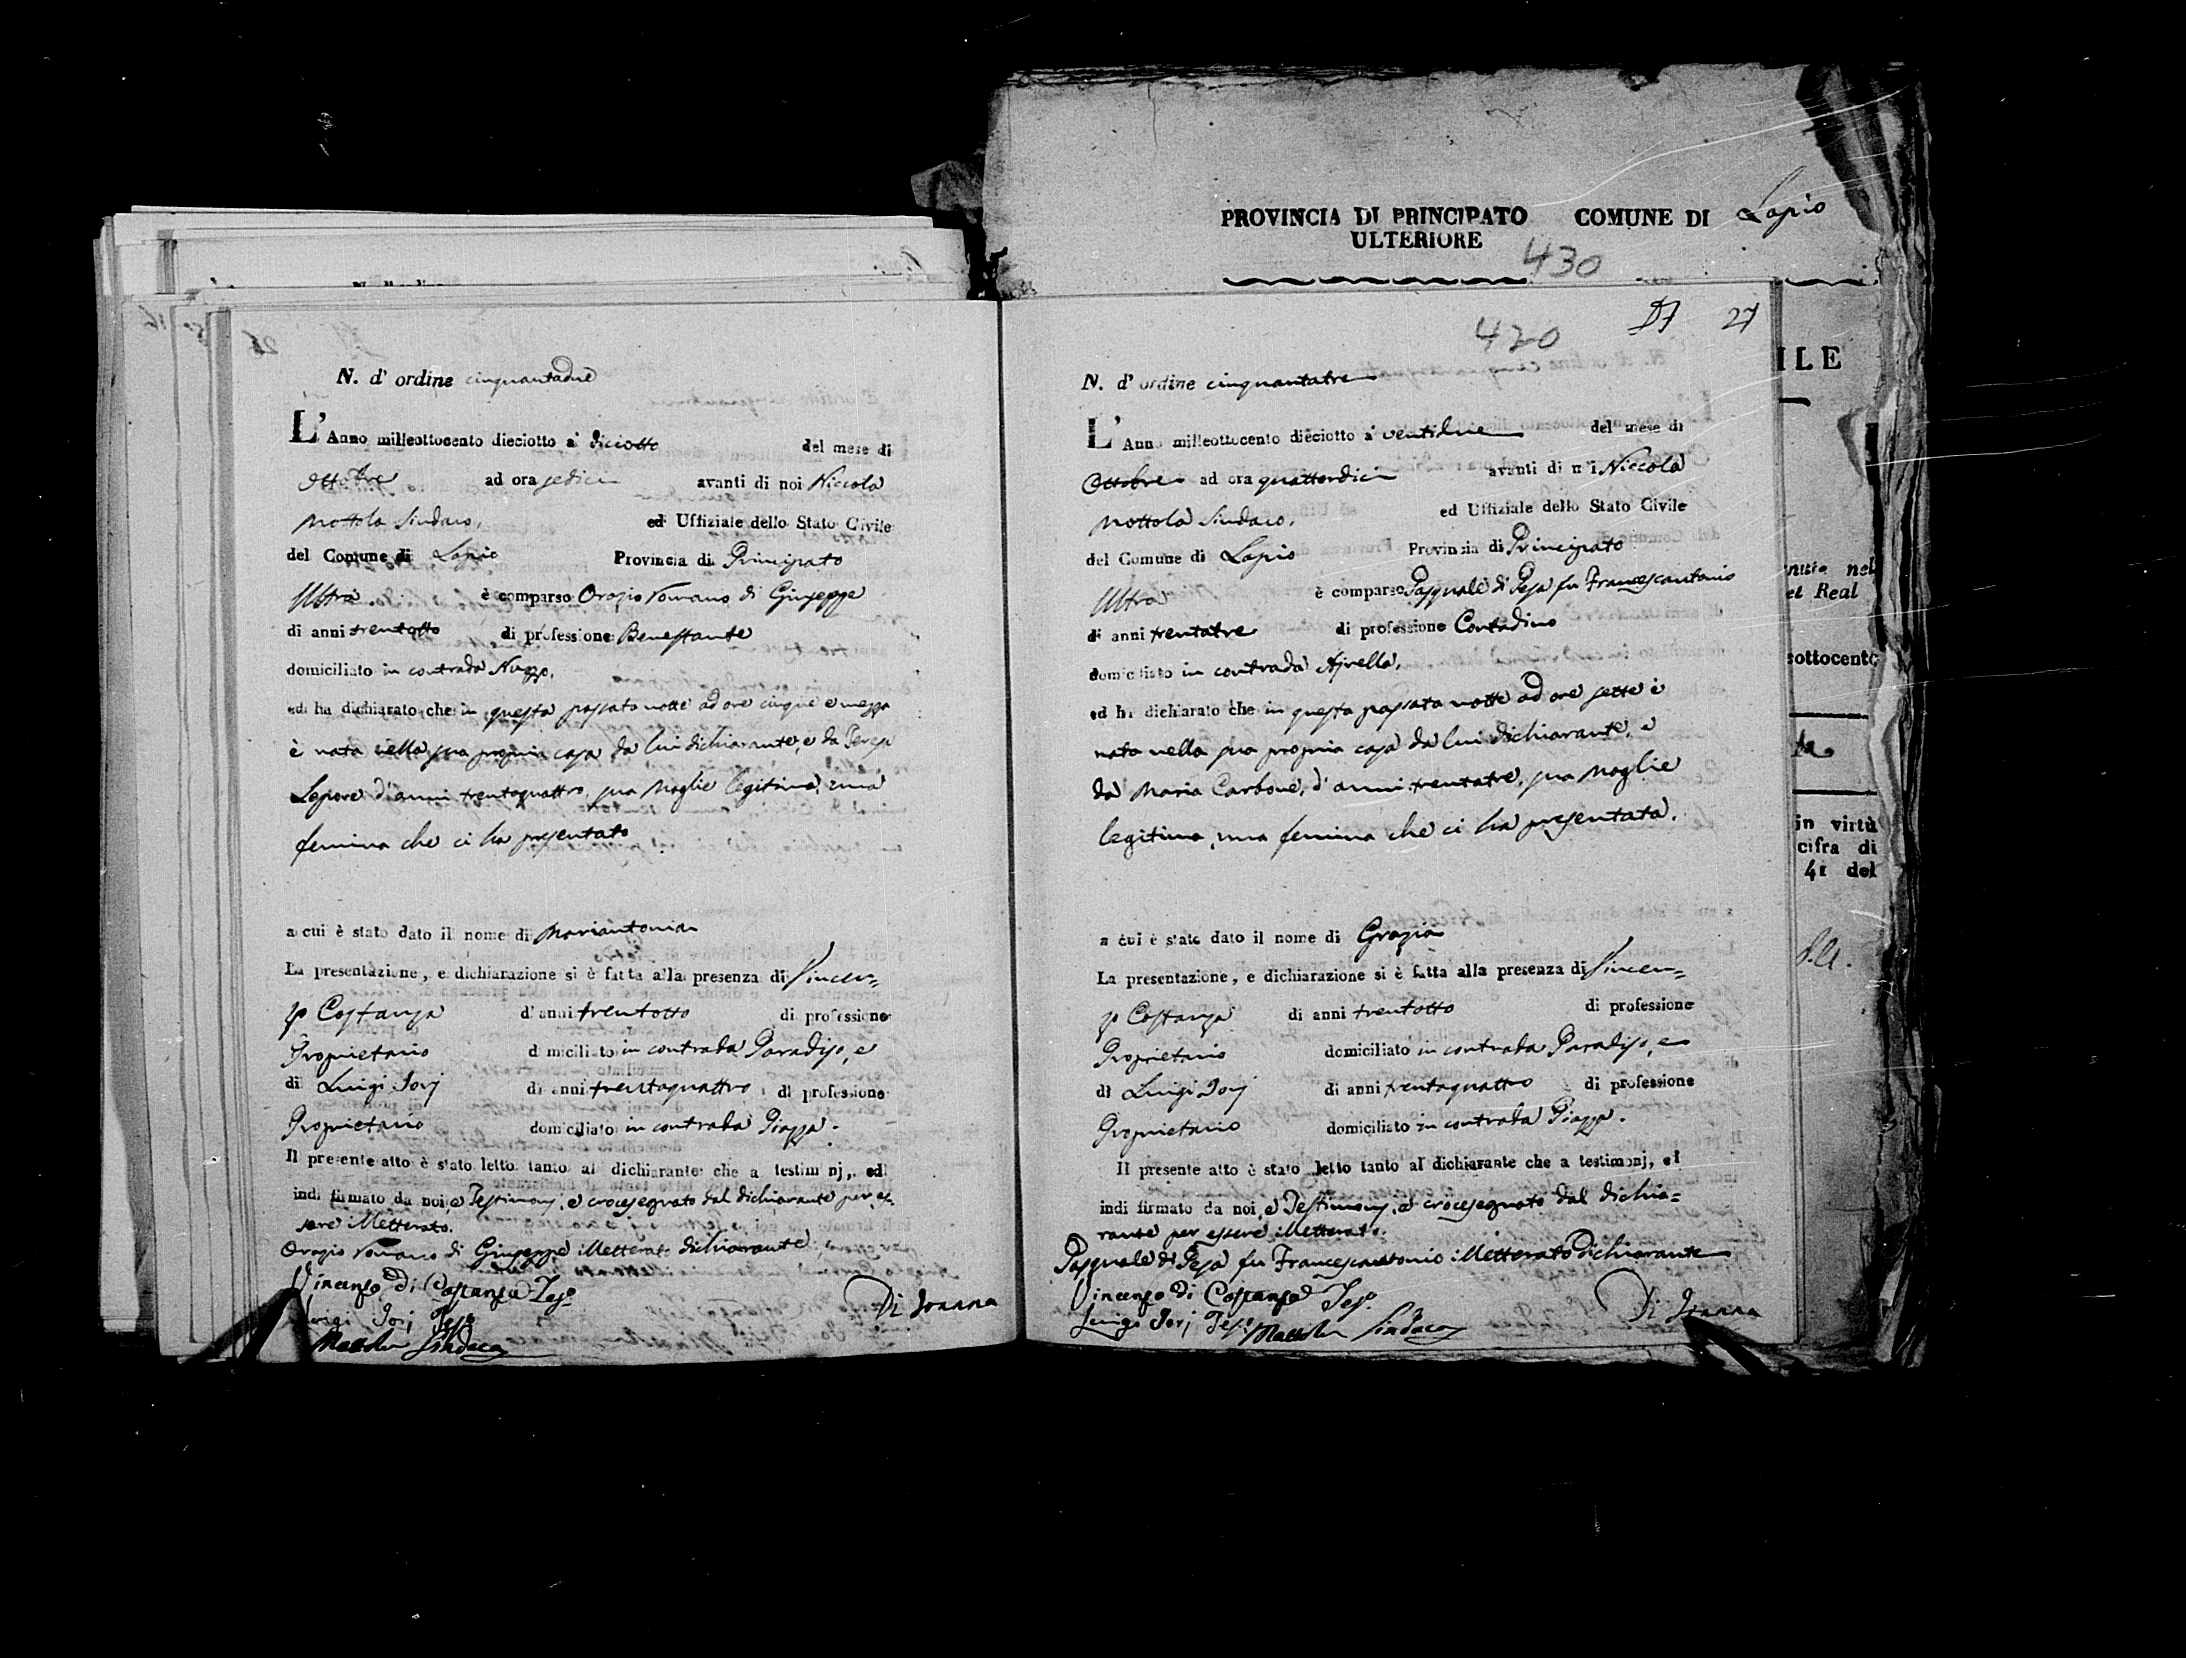 PROVINCIA DI PRINCIPATO ULTERIORE COMUNE DI Lapio
430
N. d' ordine cinquantadue
L'Anno milleottocento dieciotto a' diciotto del mese di
Ottobre ad ora sedici avanti di noi Niccola
Mottola Sindaco, ed Uffiziale dello Stato Civile
del Comune di Lapio Provincia di Principato
Ultra è comparso Orazio Romano di Giuseppe
di anni trentotto di professione Benestante
domiciliato in contrada Nuzzo,
ed ha dichiarato che in questa passata notte ad ore cinque e mezza
è nata nella sua propria casa da lui dichiarante, e da Teresa
Lepore d'anni trentaquattro, sua Moglie legitima, una
femina che ci ha presentato
a cui è stato dato il nome di Mariantonia
La presentazione, e dichiarazione si è fatta alla presenza di Vincen=
zo Costanza d'anni trentotto di professione
Proprietario domiciliato in contrada Paradiso, e
di Luigi Iorj di anni trentaquattro, di professione
Proprietario domiciliato in contrada Piazza.
Il presente atto è stato letto tanto al dichiarante che a testimonj, ed
indi firmato da noi, e Testimonj, e crocesegnato dal dichiarante per es=
sere illetterato.
Orazio Romano di Giuseppe illetterato dichiarante
Vincenzo Di Costanza Tes.o
Luigi Iorj Tes.o Di Ioanna
Mottola Sindaco
420 27 27
N. d' ordine cinquantatre
L'Anno milleottocento dieciotto a' ventidue del mese di
Ottobre ad ora quattordici avanti di noi Niccola
Mottola Sindaco, ed Uffiziale dello Stato Civile
del Comune di Lapio Provincia di Principato
Ultra è comparso Pasquale di Pesa fu Francescantonio
di anni trentatre di professione Contadino
domiciliato in contrada Ajrella,
ed ha dichiarato che in questa passata notte ad ore sette è
nata nella sua propria casa da lui dichiarante, e
da Maria Carbone, d'anni trentatre, sua Moglie
legitima, una femina che ci ha presentata.
a cui è stato dato il nome di Grazia
La presentazione, e dichiarazione si è fatta alla presenza di Vincen=
zo Costanza di anni trentotto di professione
Proprietario domiciliato in contrada Paradiso, e
di Luigi Iorj di anni trentaquattro di professione
Proprietario domiciliato in contrada Piazza.
Il presente atto è stato letto tanto al dichiarante che a testimonj, ed
indi firmato da noi, e Testimonj, e crocesegnato dal dichia=
rante per essere illetterato.
Pasquale di Pesa fu Francescantonio illetterato dichiarante
Vincenzo di Costanza Tes.o
Luigi Iorj Tes.o Mottola Sindaco Di Ioanna
ILE
nel
et Real
sottocento
in virtù
cifra di
41 del